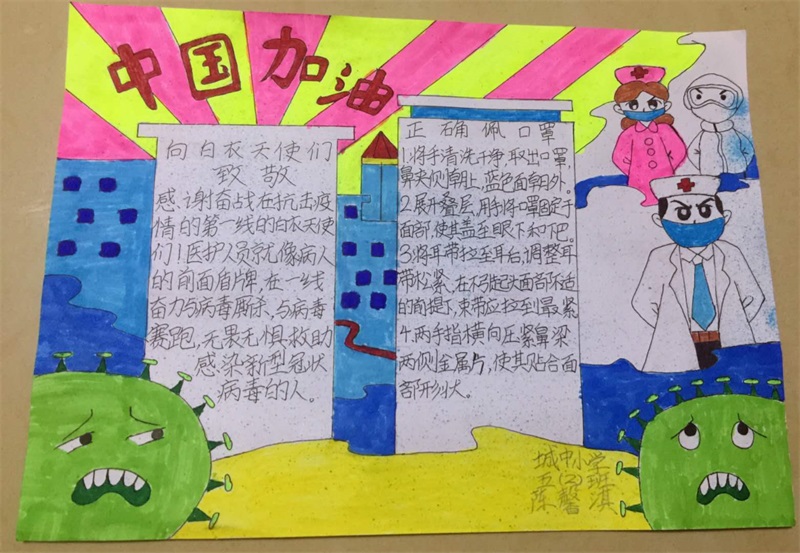 中国加油
向白衣天使们
致敬
感谢奋战在抗击疫
情的第一线的白衣天使
们！医护人员就像病人
的前面盾牌，在一线
奋力与病毒厮杀、与病毒
赛跑，无畏无惧救助
感染新型冠状
病毒的人。
正确佩口罩
1.将手清洗干净，取出口罩，
鼻夹侧朝上，蓝色面朝外。
2.展开叠层，用手将口罩固定于
面部，使其盖至眼下和下巴。
3.将耳带拉至耳后，调整耳
带松紧，在不引起头面部不适
的前提下，束带应拉到最紧
4.两手指横向压紧鼻梁
两侧金属片，使其贴合面
部形状。
城中小学
五(2)班
陈馨淇